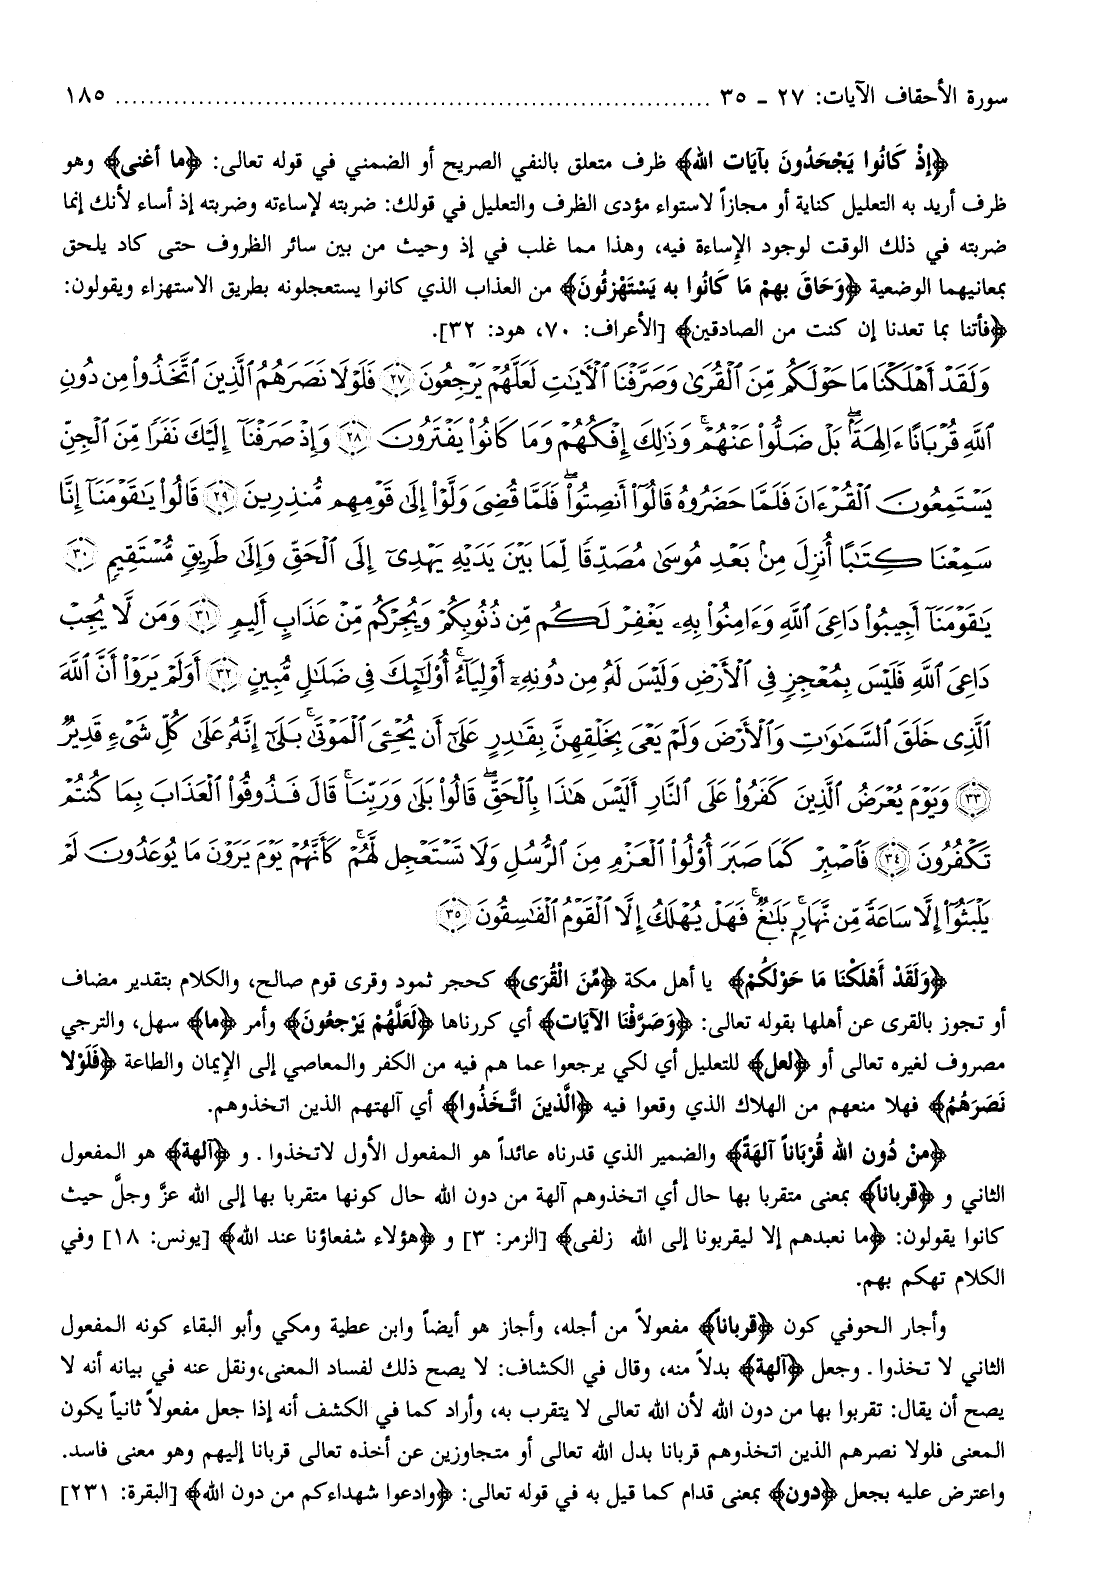 سورة الأحقاف الآيات: ٢٧ ـ ٣٥ ........................................................................ ١٨٥
﴿إذْ كَانُوا يَجْحَدُونَ بآيَات الله﴾ ظرف متعلق بالنفي الصريح أو الضمني في قوله تعالى: ﴿ما أغنى﴾ وهو
ظرف أريد به التعليل كناية أو مجازاً لاستواء مؤدى الظرف والتعليل في قولك: ضربته لإساءته وضربته إذ أساء لأنك إنما
ضربته في ذلك الوقت لوجود الإِساءة فيه، وهذا مما غلب في إذ وحيث من بين سائر الظروف حتى كاد يلحق
بمعانيهما الوضعية ﴿وَحَاقَ بهمْ مَا كَانُوا به يَسْتَهْزئُونَ﴾ من العذاب الذي كانوا يستعجلونه بطريق الاستهزاء ويقولون:
﴿فأتنا بما تعدنا إن كنت من الصادقين﴾ [الأعراف: ٧٠، هود: ٣٢].
وَلَقَدْ أَهْلَكْنَا مَا حَوْلَكُم مِّنَ ٱلْقُرَىٰ وَصَرَّفْنَا ٱلْءَايَـٰتِ لَعَلَّهُمْ يَرْجِعُونَ ۝٢٧ فَلَوْلَا نَصَرَهُمُ ٱلَّذِينَ ٱتَّخَذُوا۟ مِن دُونِ
ٱللَّهِ قُرْبَانًا ءَالِهَةًۢ ۖ بَلْ ضَلُّوا۟ عَنْهُمْ ۚ وَذَٰلِكَ إِفْكُهُمْ وَمَا كَانُوا۟ يَفْتَرُونَ ۝٢٨ وَإِذْ صَرَفْنَآ إِلَيْكَ نَفَرًا مِّنَ ٱلْجِنِّ
يَسْتَمِعُونَ ٱلْقُرْءَانَ فَلَمَّا حَضَرُوهُ قَالُوٓا۟ أَنصِتُوا۟ ۖ فَلَمَّا قُضِىَ وَلَّوْا۟ إِلَىٰ قَوْمِهِم مُّنذِرِينَ ۝٢٩ قَالُوا۟ يَـٰقَوْمَنَآ إِنَّا
سَمِعْنَا كِتَـٰبًا أُنزِلَ مِنۢ بَعْدِ مُوسَىٰ مُصَدِّقًا لِّمَا بَيْنَ يَدَيْهِ يَهْدِىٓ إِلَى ٱلْحَقِّ وَإِلَىٰ طَرِيقٍ مُّسْتَقِيمٍ ۝٣٠
يَـٰقَوْمَنَآ أَجِيبُوا۟ دَاعِىَ ٱللَّهِ وَءَامِنُوا۟ بِهِۦ يَغْفِرْ لَكُم مِّن ذُنُوبِكُمْ وَيُجِرْكُم مِّنْ عَذَابٍ أَلِيمٍ ۝٣١ وَمَن لَّا يُجِبْ
دَاعِىَ ٱللَّهِ فَلَيْسَ بِمُعْجِزٍ فِى ٱلْأَرْضِ وَلَيْسَ لَهُۥ مِن دُونِهِۦٓ أَوْلِيَآءُ ۚ أُو۟لَـٰٓئِكَ فِى ضَلَـٰلٍ مُّبِينٍ ۝٣٢ أَوَلَمْ يَرَوْا۟ أَنَّ ٱللَّهَ
ٱلَّذِى خَلَقَ ٱلسَّمَـٰوَٰتِ وَٱلْأَرْضَ وَلَمْ يَعْىَ بِخَلْقِهِنَّ بِقَـٰدِرٍ عَلَىٰٓ أَن يُحْـِۧىَ ٱلْمَوْتَىٰ ۚ بَلَىٰٓ إِنَّهُۥ عَلَىٰ كُلِّ شَىْءٍ قَدِيرٌ
۝٣٣ وَيَوْمَ يُعْرَضُ ٱلَّذِينَ كَفَرُوا۟ عَلَى ٱلنَّارِ أَلَيْسَ هَـٰذَا بِٱلْحَقِّ ۖ قَالُوا۟ بَلَىٰ وَرَبِّنَا ۚ قَالَ فَذُوقُوا۟ ٱلْعَذَابَ بِمَا كُنتُمْ
تَكْفُرُونَ ۝٣٤ فَٱصْبِرْ كَمَا صَبَرَ أُو۟لُوا۟ ٱلْعَزْمِ مِنَ ٱلرُّسُلِ وَلَا تَسْتَعْجِل لَّهُمْ ۚ كَأَنَّهُمْ يَوْمَ يَرَوْنَ مَا يُوعَدُونَ لَمْ
يَلْبَثُوٓا۟ إِلَّا سَاعَةً مِّن نَّهَارٍۭ ۚ بَلَـٰغٌ ۚ فَهَلْ يُهْلَكُ إِلَّا ٱلْقَوْمُ ٱلْفَـٰسِقُونَ ۝٣٥
﴿وَلَقَدْ أَهْلَكْنَا مَا حَوْلَكُمْ﴾ يا أهل مكة ﴿مِّنَ الْقُرَى﴾ كحجر ثمود وقرى قوم صالح، والكلام بتقدير مضاف
أو تجوز بالقرى عن أهلها بقوله تعالى: ﴿وَصَرَّفْنَا الآيَات﴾ أي كررناها ﴿لَعَلَّهُمْ يَرْجعُونَ﴾ وأمر ﴿ما﴾ سهل، والترجي
مصروف لغيره تعالى أو ﴿لعل﴾ للتعليل أي لكي يرجعوا عما هم فيه من الكفر والمعاصي إلى الإِيمان والطاعة ﴿فَلَوْلا
نَصَرَهُمُ﴾ فهلا منعهم من الهلاك الذي وقعوا فيه ﴿الَّذينَ اتَّخَذُوا﴾ أي آلهتهم الذين اتخذوهم.
﴿منْ دُون الله قُرْبَاناً آلهَةً﴾ والضمير الذي قدرناه عائداً هو المفعول الأول لاتخذوا . و ﴿آلهة﴾ هو المفعول
الثاني و ﴿قرباناً﴾ بمعنى متقربا بها حال أي اتخذوهم آلهة من دون الله حال كونها متقربا بها إلى الله عزَّ وجلَّ حيث
كانوا يقولون: ﴿ما نعبدهم إلا ليقربونا إلى الله زلفى﴾ [الزمر: ٣] و ﴿هؤلاء شفعاؤنا عند الله﴾ [يونس: ١٨] وفي
الكلام تهكم بهم.
وأجار الحوفي كون ﴿قرباناً﴾ مفعولاً من أجله، وأجاز هو أيضاً وابن عطية ومكي وأبو البقاء كونه المفعول
الثاني لا تخذوا . وجعل ﴿آلهة﴾ بدلاً منه، وقال في الكشاف: لا يصح ذلك لفساد المعنى،ونقل عنه في بيانه أنه لا
يصح أن يقال: تقربوا بها من دون الله لأن الله تعالى لا يتقرب به، وأراد كما في الكشف أنه إذا جعل مفعولاً ثانياً يكون
المعنى فلولا نصرهم الذين اتخذوهم قربانا بدل الله تعالى أو متجاوزين عن أخذه تعالى قربانا إليهم وهو معنى فاسد.
واعترض عليه بجعل ﴿دون﴾ بمعنى قدام كما قيل به في قوله تعالى: ﴿وادعوا شهداءكم من دون الله﴾ [البقرة: ٢٣١]